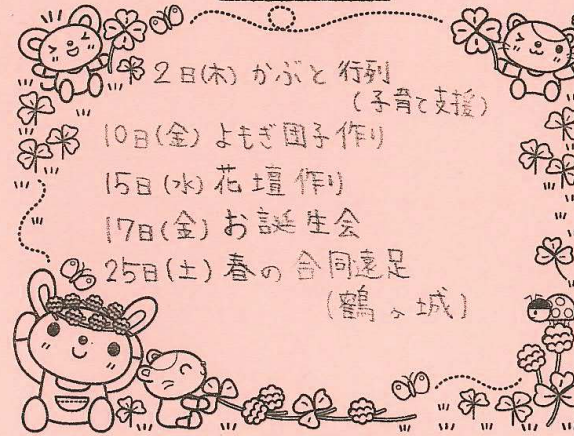 2日(木) かぶと行列
(子育て支援)
10日(金) よもぎ団子作り
15日(水) 花壇作り
17日(金) お誕生会
25日(土) 春の合同遠足
(鶴ヶ城)